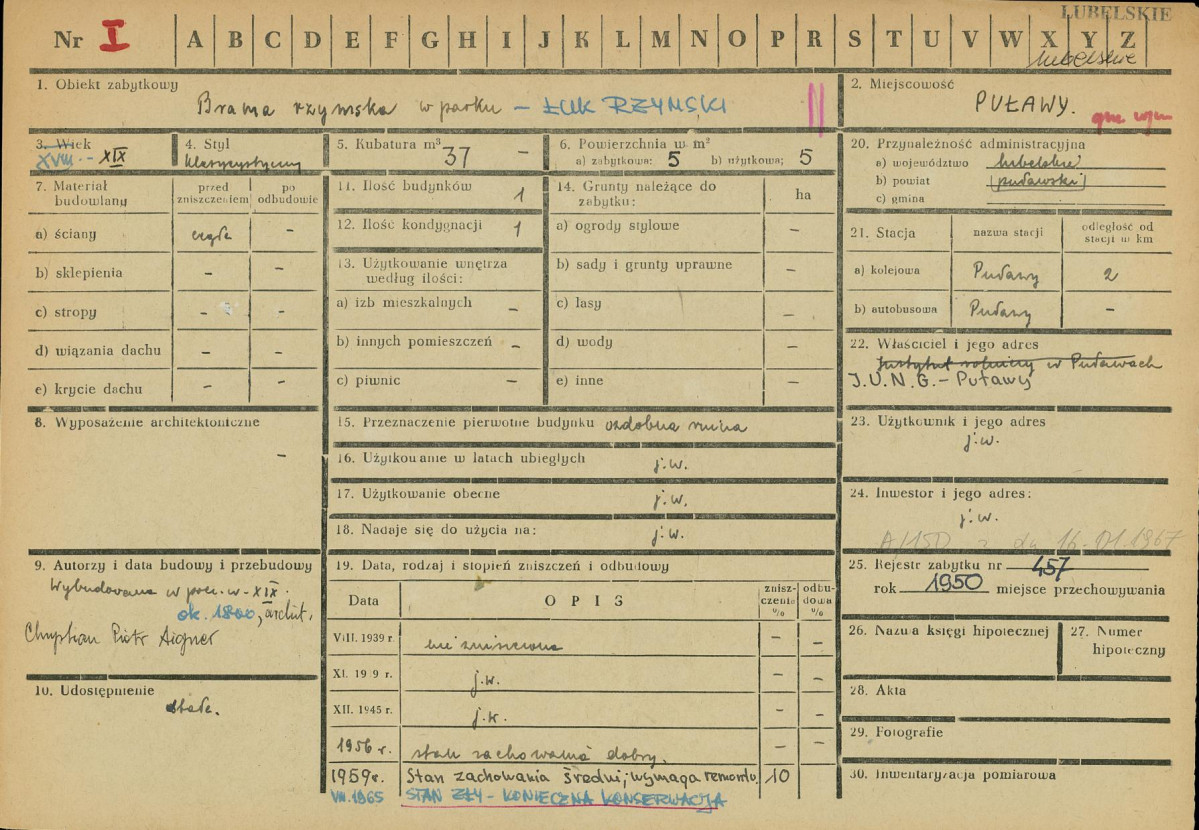 LUBELSKIE
Nr I A B C D E F G H I J K L M N O P R S T U V W X Y Z
lubelskie
1. Obiekt zabytkowy
Brama rzymska w parku – ŁUK RZYMSKI
2. Miejscowość
PUŁAWY.
3. Wiek
XVIII. - XIX
4. Styl
klasycystyczny
5. Kubatura m³ 37 –
6. Powierzchnia w m²
a) zabytkowa: 5 b) użytkowa; 5
20. Przynależność administracyjna
a) województwo lubelskie
b) powiat (puławski)
c) gmina
7. Materiał budowlany
przed zniszczeniem
po odbudowie
a) ściany cegła –
b) sklepienia – –
c) stropy – –
d) wiązania dachu – –
e) krycie dachu – –
11. Ilość budynków 1
12. Ilość kondygnacji 1
13. Użytkowanie wnętrza
według ilości:
a) izb mieszkalnych –
b) innych pomieszczeń –
c) piwnic –
14. Grunty należące do
zabytku: ha
a) ogrody stylowe –
b) sady i grunty uprawne –
c) lasy –
d) wody –
e) inne –
21. Stacja
nazwa stacji
odległość od
stacji w km
a) kolejowa Puławy 2
b) autobusowa Puławy –
22. Właściciel i jego adres
Instytut rolniczy w Puławach
I.U.N.G. – Puławy
8. Wyposażenie architektoniczne
–
15. Przeznaczenie pierwotne budynku ozdobna ruina
16. Użytkowanie w latach ubiegłych j.w.
17. Użytkowanie obecne j.w.
18. Nadaje się do użycia na: j.w.
23. Użytkownik i jego adres
j.w.
24. Inwestor i jego adres:
j.w.
A/150 z dn 16.01.1967
9. Autorzy i data budowy i przebudowy
Wybudowana w pocz. w. XIX.
ok. 1800, archit.
Chrystian Piotr Aigner
10. Udostępnienie
stałe.
19. Data, rodzaj i stopień zniszczeń i odbudowy
Data OPIS znisz-
czenia
% odbu-
dowa
%
VIII. 1939 r. nie zniszczona – –
XI. 19 9 r. j.w. – –
XII. 1945 r. j.w. – –
1956 r. stan zachowania dobry. – –
1959 r. Stan zachowania średni; wymaga remontu. 10
VII. 1965 STAN ZŁY – KONIECZNA KONSERWACJA
25. Rejestr zabytku nr 457
rok 1950 miejsce przechowywania
26. Nazwa księgi hipotecznej
27. Numer
hipoteczny
28. Akta
29. Fotografie
30. Inwentaryzacja pomiarowa